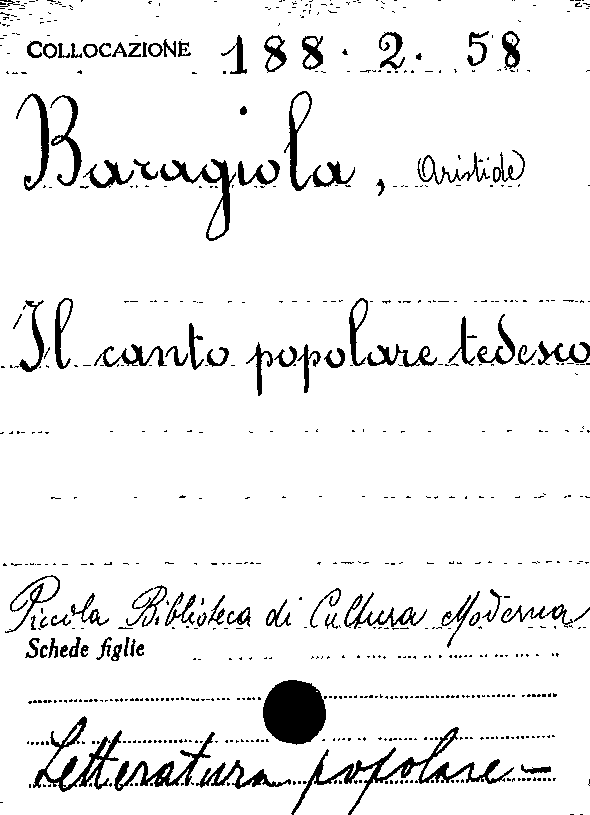 COLLOCAZIONE 188. 2. 58
Baragiola, Aristide
Il canto popolare tedesco
Piccola Biblioteca di Cultura Moderna
Schede figlie
Letteratura popolare -